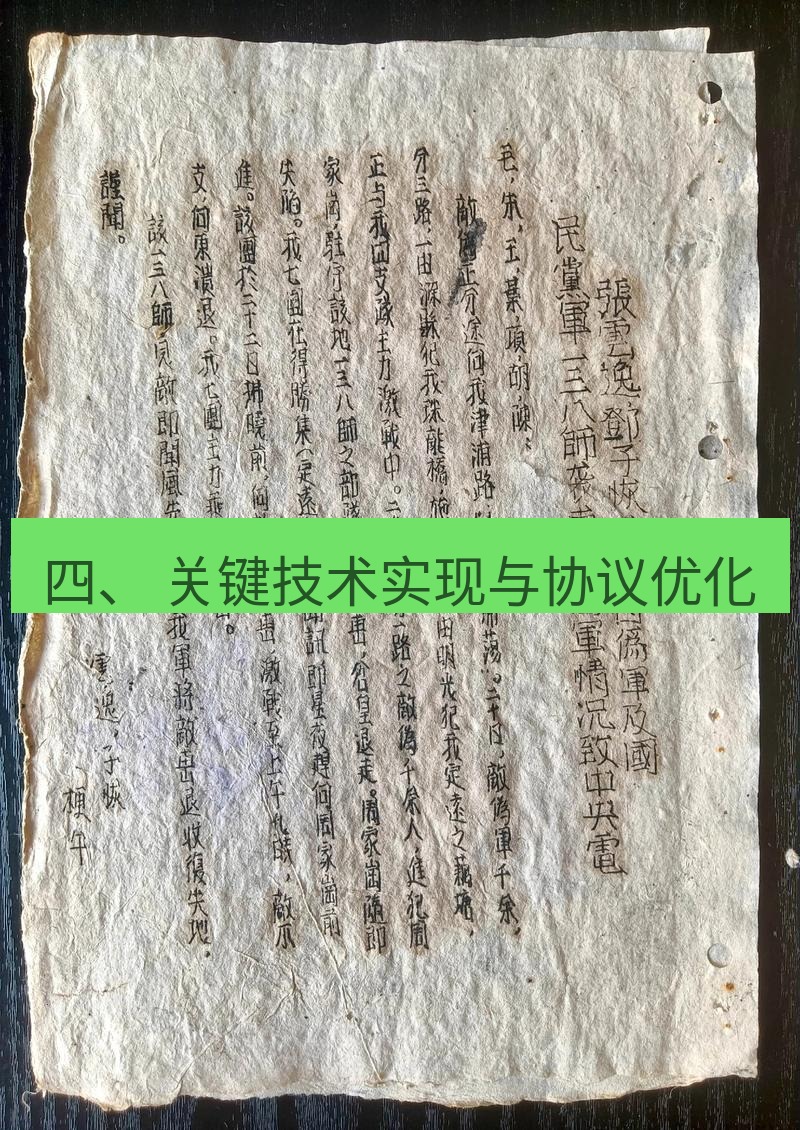 張雲逸、鄧子恢
偽軍及國
民黨軍一三八師襲
軍情況致中央電
毛，朱，王，葉，項，胡，陳：
敵
正分途向我津浦路
掃蕩。二十日，敵偽軍千余，
分三路，一由滁縣犯我珠龍橋，施
由明光犯我定遠之藕塘，
正与我四支威主力激戰中。二
路之敵偽千余人，進犯周
家崗，駐守該地一三八師之部隊
擊，倉皇退走。周家崗隨即
失陷。我七團在得勝集（定遠
聞訊即星夜趕向周家崗前
進。該團於二十二日拂曉前，向
擊，激戰至上午九時，敵不
支，向東潰退。我七團主力乘
該一三八師，見敵即聞風先
我軍將敵击退收復失地，
謹聞。
雲逸，子恢
梗午
四、 关键技术实现与协议优化